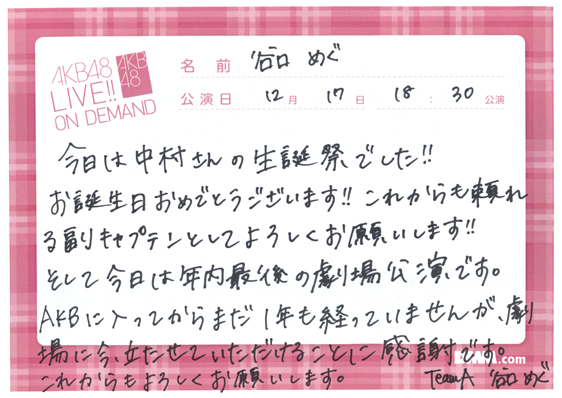 AKB48
LIVE!!
ON DEMAND
AKB
48
名 前 谷口 めぐ
公演日 12 月 17 日 18 : 30 公演
今日は中村さんの生誕祭でした!!
お誕生日おめでとうございます!! これからも頼れ
る副キャプテンとしてよろしくお願いします!!
そして今日は年内最後の劇場公演です。
AKBに入ってからまだ1年も経っていませんが、劇
場に今、立たせていただけることに感謝です。
これからもよろしくお願いします。
TeamA 谷口 めぐ